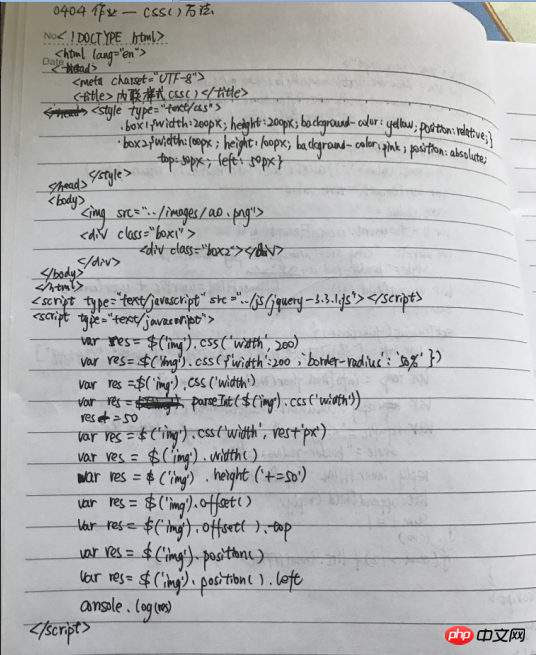 0404 作业 — css()方法
No.
<!DOCTYPE html>
Date
<html lang="en">
<head>
<meta charset="UTF-8">
<title>内联样式css()</title>
<style type="text/css">
.box1{width:200px; height:200px; background-color:yellow; position:relative;}
.box2{width:100px; height:100px; background-color:pink; position:absolute;
top:50px; left:50px}
</style>
</head>
<body>
<img src="../images/a0.png">
<div class="box1">
<div class="box2"></div>
</div>
</body>
</html>
<script type="text/javascript" src="../js/jquery-3.3.1.js"></script>
<script type="text/javascript">
var res = $('img').css('width',200)
var res=$('img').css({'width':200,'border-radius':'50%'})
var res =$('img').css('width')
var res = parseInt($('img').css('width'))
res+=50
var res = $('img').css('width', res+'px')
var res = $('img').width()
var res = $('img').height('+=50')
var res = $('img').offset()
var res = $('img').offset().top
var res = $('img').position()
var res= $('img').position().left
console.log(res)
</script>
php 中文网